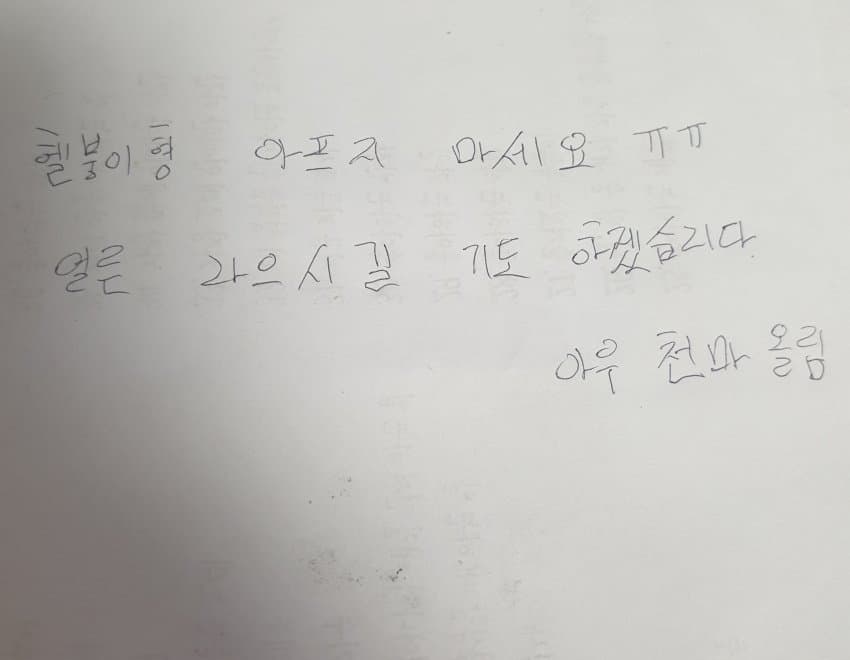 헬붕이형 아프지 마세요 ㅠㅠ
얼른 라으시길 기도 하겠습니다
아우 천마 올림